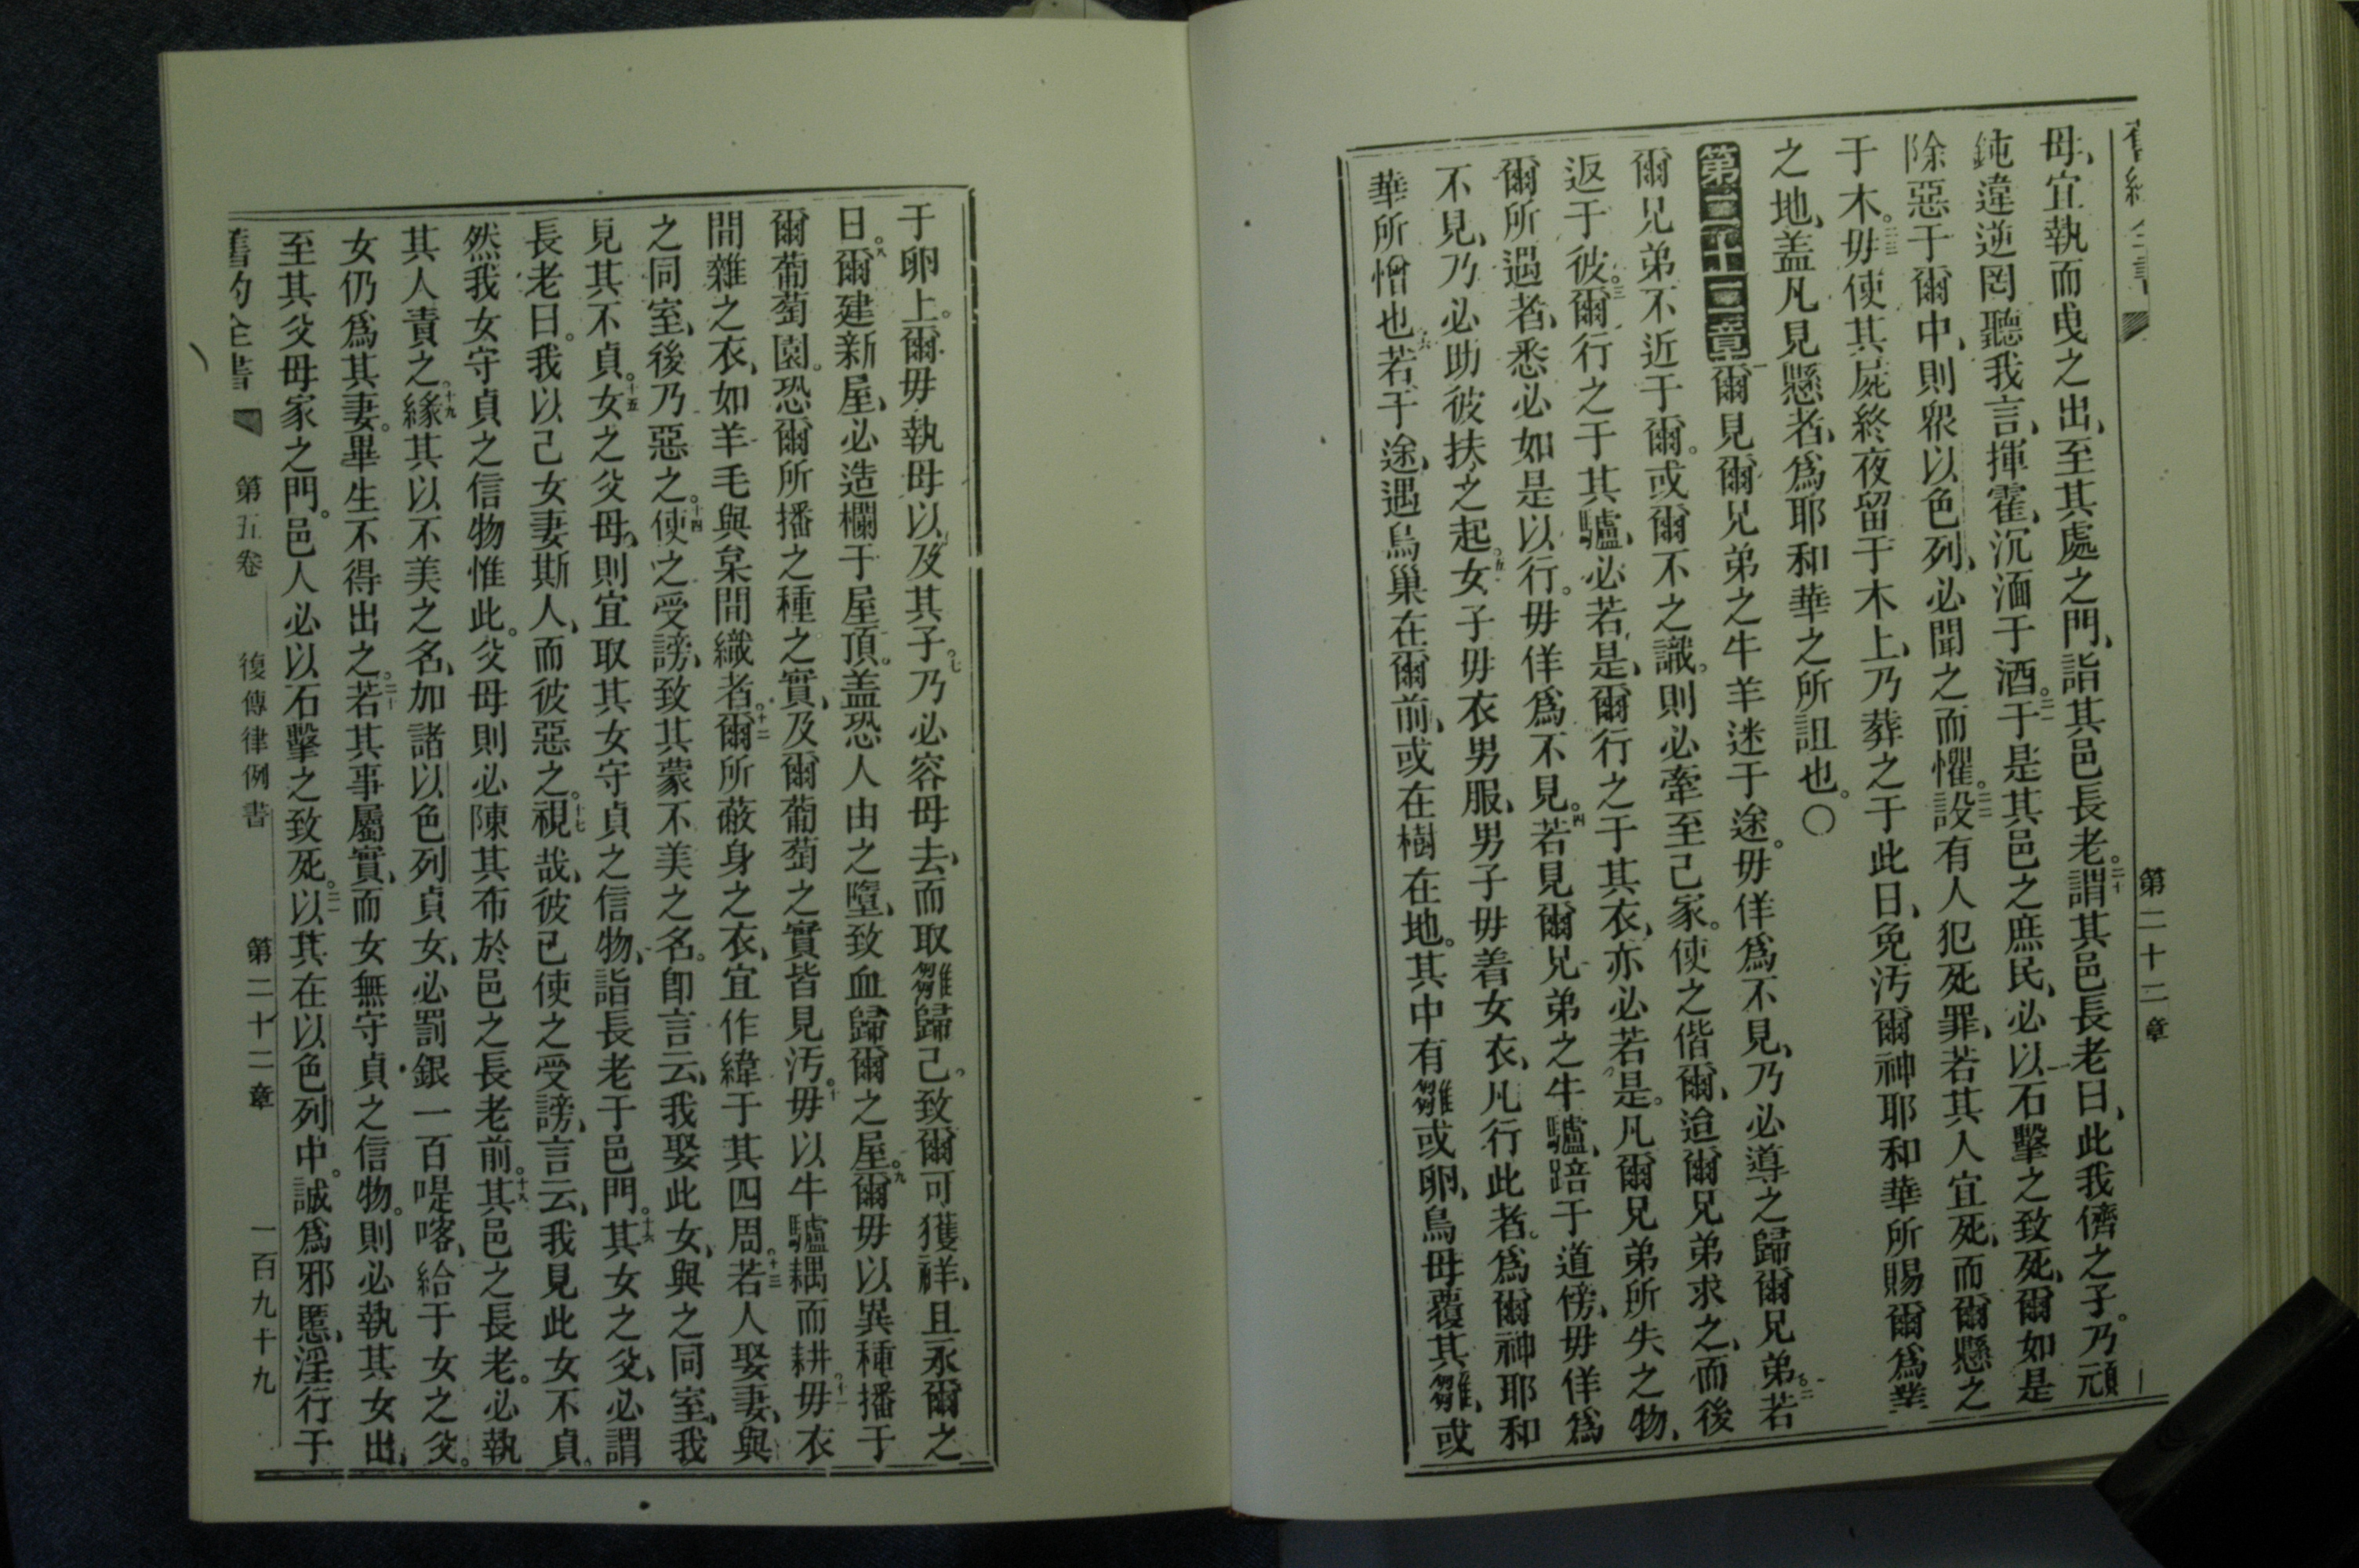 第二十二章
母、宜執而曳之出、至其處之門、詣其邑長老。二十謂其邑長老曰、此我儕之子。乃頑
鈍違逆罔聽我言、揮霍、沉湎于酒。二一于是其邑之庶民、必以石擊之致死、爾如是
除惡于爾中、則衆以色列、必聞之而懼。二二設有人犯死罪、若其人宜死、而爾懸之
于木。二三毋使其屍終夜留于木上、乃葬之于此日、免汚爾神耶和華所賜爾爲業
之地、盖凡見懸者、爲耶和華之所詛也。〇
第二十二章一爾見爾兄弟之牛羊迷于途。毋佯爲不見、乃必導之歸爾兄弟。二若
爾兄弟不近于爾。或爾不之識。則必牽至己家。使之偕爾、迨爾兄弟求之、而後
返于彼。三爾行之于其驢、必若是、爾行之于其衣、亦必若是。凡爾兄弟所失之物、
爾所遇者、悉必如是以行。毋佯爲不見。四若見爾兄弟之牛驢、踣于道傍、毋佯爲
不見、乃必助彼扶之起。五女子毋衣男服、男子毋着女衣、凡行此者。爲爾神耶和
華所憎也六若于途、遇鳥巢在爾前、或在樹在地。其中有雛或卵、鳥母覆其雛、或
于卵上。爾毋執母以及其子。七乃必容母去、而取雛歸己。致爾可獲祥、且永爾之
日。八爾建新屋、必造欄于屋頂。盖恐人由之墮、致血歸爾之屋。九爾毋以異種播于
爾葡萄園。恐爾所播之種之實、及爾葡萄之實皆見汚。十毋以牛驢耦而耕。十一毋衣
間雜之衣、如羊毛與枲間織者。十二爾所蔽身之衣、宜作繸于其四周。十三若人娶妻、與
之同室、後乃惡之。十四使之受謗、致其蒙不美之名。卽言云、我娶此女、與之同室、我
見其不貞。十五女之父母、則宜取其女守貞之信物、詣長老于邑門。十六其女之父、必謂
長老曰。我以己女妻斯人、而彼惡之。十七視哉、彼已使之受謗、言云、我見此女不貞、
然我女守貞之信物惟此。父母則必陳其布於邑之長老前。十八其邑之長老。必執
其人責之。十九緣其以不美之名、加諸以色列貞女、必罰銀一百㖷喀、給于女之父。
女仍爲其妻。畢生不得出之。二十若其事屬實、而女無守貞之信物。則必執其女出、
至其父母家之門。邑人必以石擊之致死。二一以其在以色列中。誠爲邪慝、淫行于
舊約全書 第五卷 復傳律例書 第二十二章 一百九十九